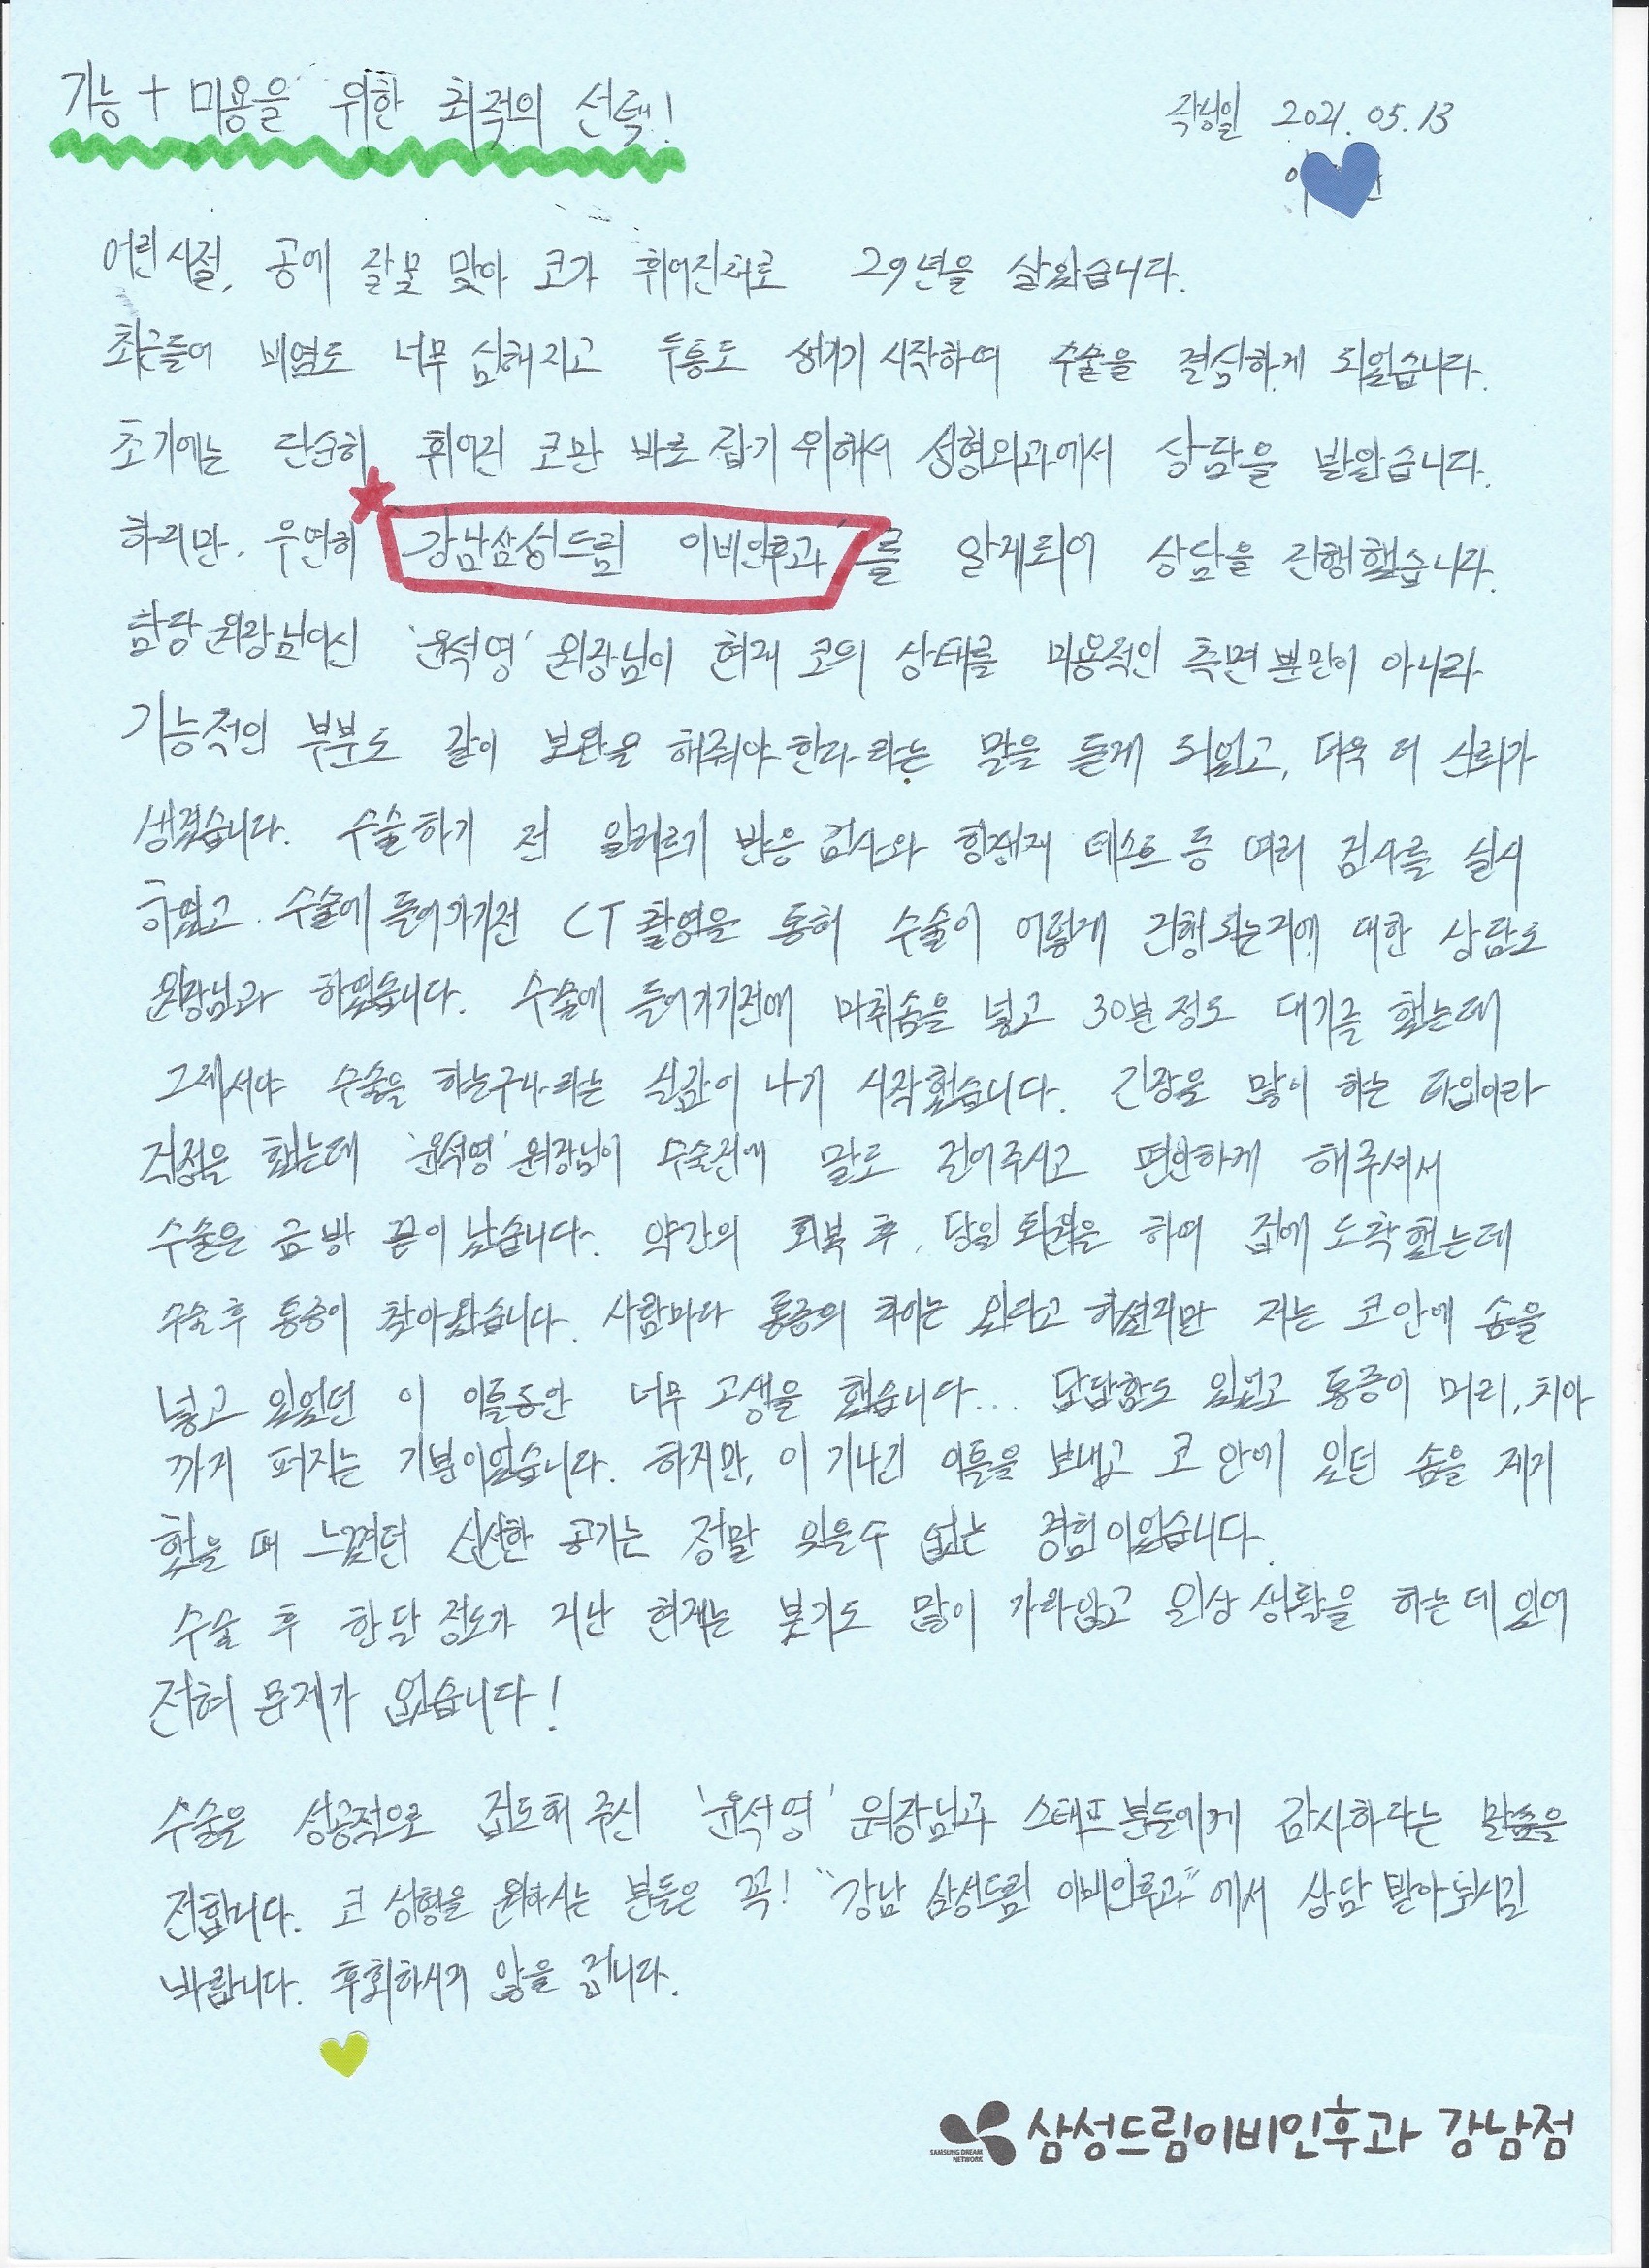 기능 + 미용을 위한 최적의 선택!
작성일 2021.05.13
어린시절, 공에 잘못 맞아 코가 휘어진채로 29년을 살았습니다.
최근들어 비염도 너무 심해지고 두통도 생기기 시작하여 수술을 결심하게 되었습니다.
초기에는 단순히 휘어진 코만 바로 잡기 위해서 성형외과에서 상담을 받았습니다.
하지만, 우연히 강남삼성드림 이비인후과를 알게되어 상담을 진행했습니다.
담당 원장님이신 '윤석영' 원장님이 현재 코의 상태를 미용적인 측면 뿐만이 아니라
기능적인 부분도 같이 보완을 해줘야 한다 라는 말을 듣게 되었고, 더욱 더 신뢰가
생겼습니다. 수술하기 전 알레르기 반응 검사와 항생제 테스트 등 여러 검사를 실시
하였고 수술에 들어가기전 CT 촬영을 통해 수술이 어떻게 진행되는지에 대한 상담도
원장님과 하였습니다. 수술에 들어가기전에 마취솜을 넣고 30분 정도 대기를 했는데
그제서야 수술을 하는구나 라는 실감이 나기 시작했습니다. 긴장을 많이 하는 타입이라
걱정을 했는데 '윤석영' 원장님이 수술전에 말도 걸어주시고 편안하게 해주셔서
수술은 금방 끝이 났습니다. 약간의 회복 후, 당일 퇴원을 하여 집에 도착했는데
수술 후 통증이 찾아왔습니다. 사람마다 통증의 차이는 있다고 하셨지만 저는 코 안에 솜을
넣고 있었던 이 이틀동안 너무 고생을 했습니다... 답답함도 있었고 통증이 머리, 치아
까지 퍼지는 기분이었습니다. 하지만, 이 기나긴 이틀을 보내고 코 안에 있던 솜을 제거
했을 때 느꼈던 신선한 공기는 정말 잊을수 없는 경험이었습니다.
수술 후 한달 정도가 지난 현재는 붓기도 많이 가라앉고 일상 생활을 하는데 있어
전혀 문제가 없습니다!
수술을 성공적으로 집도해 주신 '윤석영' 원장님과 스태프 분들에게 감사하다는 말씀을
전합니다. 코 성형을 원하시는 분들은 꼭! "강남 삼성드림 이비인후과"에서 상담 받아보시길
바랍니다. 후회하시지 않을 겁니다.
SAMSUNG DREAM NETWORK 삼성드림이비인후과 강남점